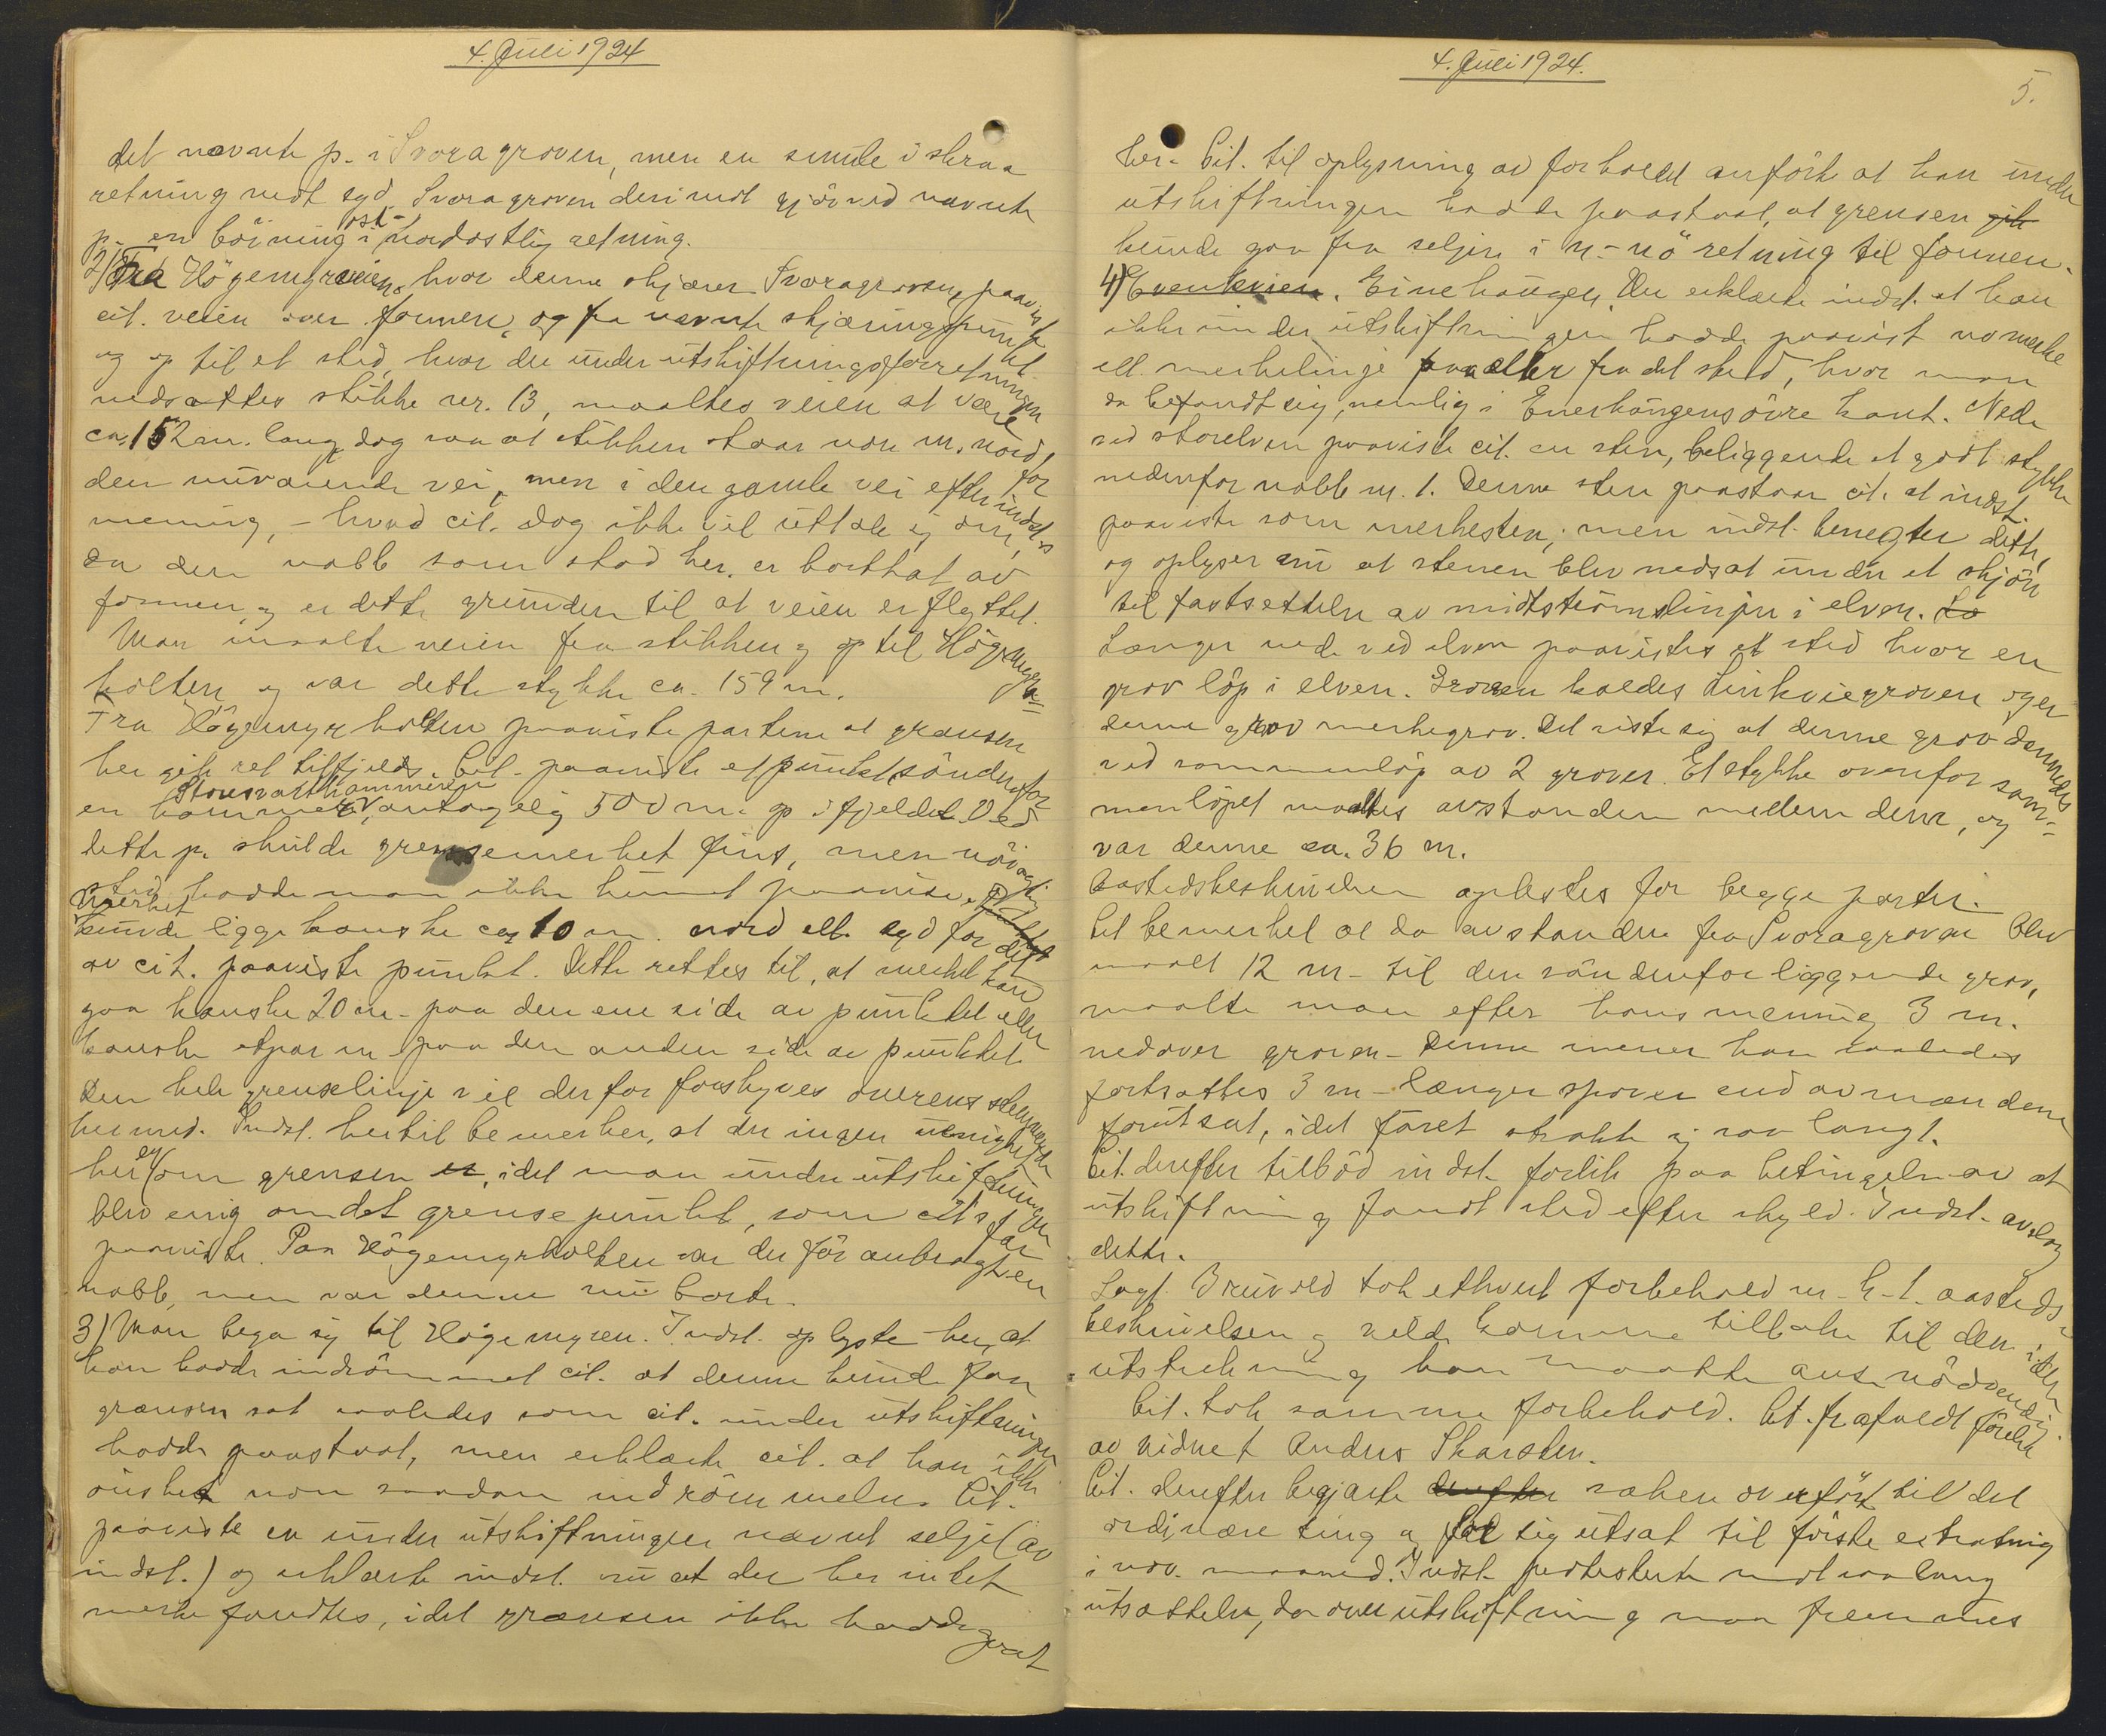 4. Juli 1924
det nævnte p. i Svoragroven, men en smule i skraa
retning mot syd. Svoragroven derimot gjör ved nævnte
p. en böining i ost-nordostlig retning.
2) Fra Högemyrveien, hvor denne skjærer Svoragroven, paaviste
cit. veien over fonnen, og fra nævnte skjæringspunkt
og op til et sted, hvor der under utskiftningsforretningen
nedsattes stikke nr. 13, maaltes veien at være
ca. 152 m. lang, dog saa at stikken staar noe m. nord for
den nuværende vei, men i den gamle vei efter indst.s
mening, - hvad cit. dog ikke vil uttale sig om,
da den nabb som stod her, er borttat av
fonnen, og er dette grunden til at veien er flyttet.
Man maalte veien fra stikken og op til Högemyr-
holten, og var dette stykke ca. 159 m.
Fra Högemyrholten paaviste partene at grænsen
her gik ret tilfjelds. Cit. paaviste et punkt söndenfor
en hammer, Storesvarthammeren, antagelig 500 m. op i fjeldet. Ved
dette p. skulde grensemerket fins, men nöiagtig
sted hadde man ikke kunnet paavise,
merket kunde ligge kanske ca. 10 m. nord ell. syd for det
av cit. paaviste punkt. Dette rettes til, at merket kan
gaa kanske 20 m. paa den ene side av punktet eller
kanske etpar m. paa den anden side av punktet.
Den hele grenselinje vil derfor forskyves overensstemmende
hermed. Indst. hertil bemerker, at der ingen uenighet
her er om grensen, idet man under utskiftningen
blev enig om det grensepunkt, som cit's far
paaviste. Paa Högemyrholten var der för anbragt en
nabb, men var denne nu borte.
3) Man bega sig til Högemyren. Indst. oplyste her, at
han hadde indrömmet cit. at denne kunde faa
grænsen sat saaledes som cit. under utskiftningen
hadde paastaat, men erklærte cit. at han ikke
önsket noen saadan indrömmelse. Cit.
paaviste en under utskiftningen nævnt selje (av
indst.) og erklærte indst. nu at der her intet
merke fandtes, idet grænsen ikke hadde gaat
4. Juli 1924.
5.
her. Cit. til oplysning av forholdet anförte at han under
utskiftningen hadde paastaat, at grensen gik
kunde gaa fra seljen i n-nö retning til fonnen.
4) Evenkvien. Einehaugen. Her erklærte indst. at han
ikke under utskiftningen hadde paavist no merke
ell. merkelinje paa eller fra det sted, hvor man
da befandt sig, nemlig i Enerhaugens övre kant. Nede
ved storelven paaviste cit. en sten, beliggende et godt stykke
nedenfor nabb nr. 1. Denne sten paastaar cit. at indst.
paaviste som merkesten, men indst. benegter dette,
og oplyser nu at stenen blev nedsat under et skjön
til fastsettelse av midtströmslinjen i elven. Læ
Længer nede ved elven paavistes et sted hvor en
grov löp i elven. Groven kaldes Linkviegroven og er
denne grov merkegrov. Det viste sig at denne grov dannedes
ved sammenlöp av 2 grover. Et stykke ovenfor sam-
menlöpet maaltes avstanden mellem dem, og
var denne ca. 36 m.
Aastedsbeskrivelsen oplæstes for begge parter.
Cit bemerket at da avstanden fra Svoragroven blev
maalt 12 m. til den söndenfor liggende grov,
maalte man efter hans mening 3 m.
nedover groven. Denne mener han saaledes
fortsattes 3 m. længer end av mændene
forutsat, idet faret strakte sig saa langt.
Cit. derefter tilböd indst. forlik paa betingelse av at
utskiftning fandt sted efter skyld. Indst. avslog
dette.
Sagf. Bruvold tok ethvert forbehold m.h.t. aasteds-
beskrivelsen og vilde komme tilbake til den i den
utstrekning han maatte anse nödvendig.
Cit. tok samme forbehold. Cit. frafaldt förelse
av vidnet Anders Skarsten.
Cit. derefter begjærte derefter saken overfört til det
ordinære ting og sig utsat til förste extrating
i nov. maaned. Indst. protesterte mot saa lang
utsættelse, da overutskiftning maa fremmes